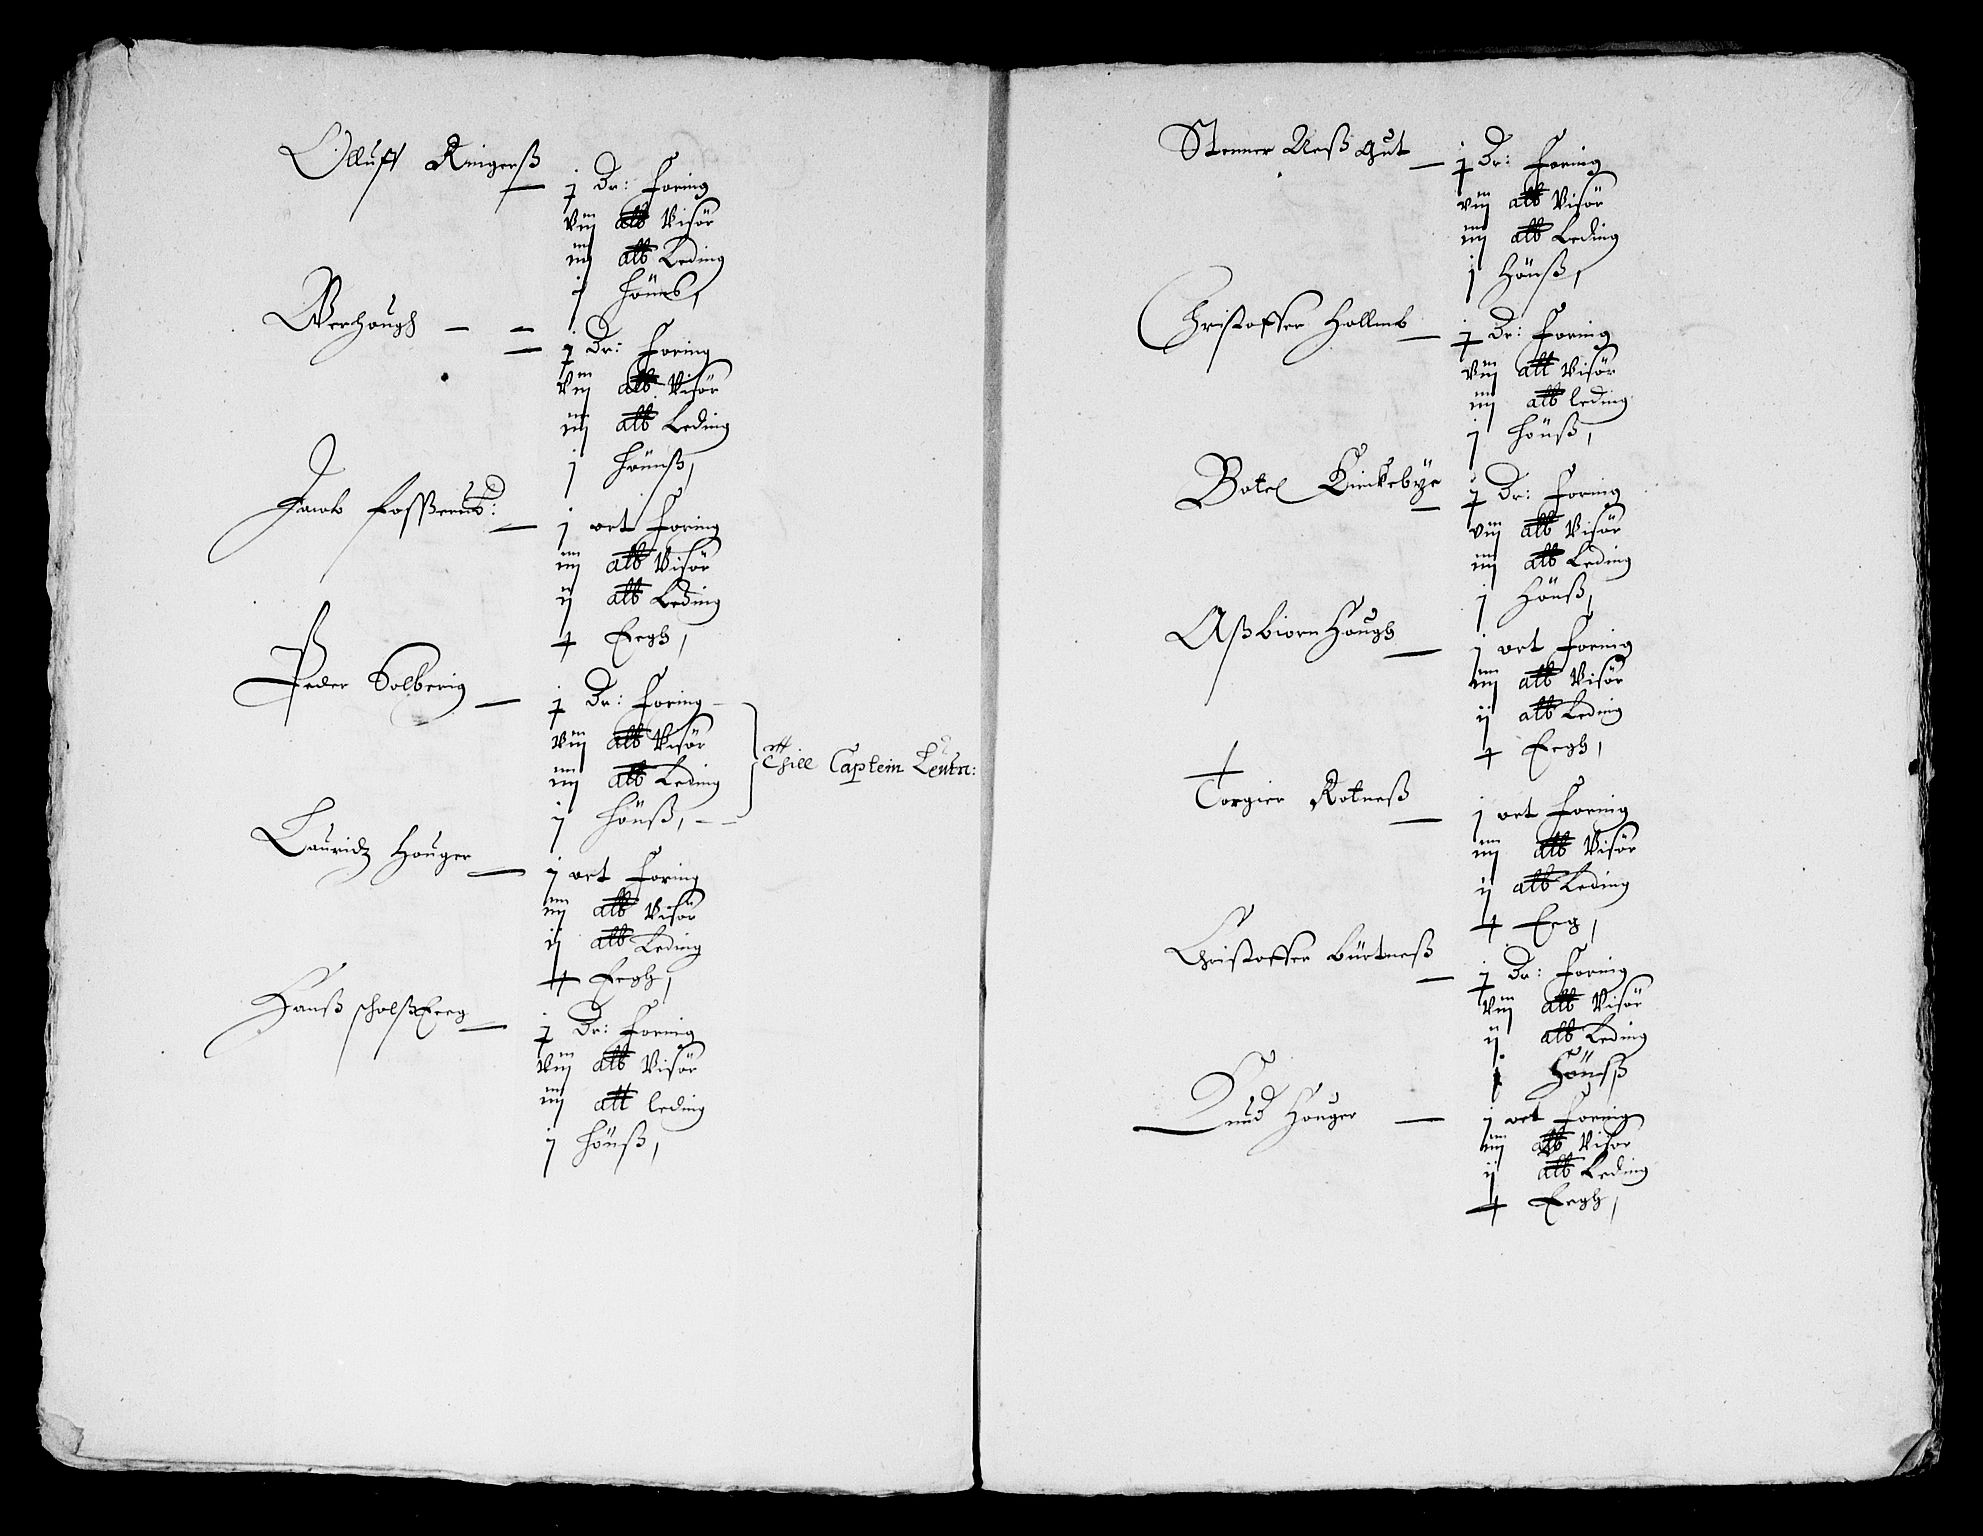 Olluff Ringerß
j Dr: Foring
viij alb Visör
iiij alb Leding
j Hönß,
Werhough
j Dr: Foring
viij alb Visör
iiij alb Leding
j Hönß,
Jacob fosßerud:
j ort Foring
iiij alb Visör
ij alb Leding
Eegh,
Peder Solberig
j Dr: Foring
viij alb Visör
iiij alb Leding
j Hönß,
Thill Captein Leutn:
Lauridz Houger
j ort Foring
iiij alb Visör
ij alb Leding
Eegh,
Hanß
j Dr: Foring
viij alb Visör
iiij alb leding
j Hönß,
Stenner Neß gut
j Dr: Foring
viij alb Visör
iiij alb Leding
j Hönß,
Christoffer
j Dr: Foring
viij alb Visör
iiij alb leding
j Hönß,
Botel Kirckebye
j Dr: Foring
viij alb Visör
iiij alb Leding
j Hönß,
Aßbiorn Hough
j ort Foring
iiij alb Visör
ij alb Leding
Eegh,
Torgier Rotneß
j ort Foring
iiij alb Visör
ij alb Leding
Eeg,
Christoffer Burtneß
j Dr: Foring
viij alb Visör
ij alb Leding
j Hönß
Knud Houger
j ort Foring
iiij alb Visör
ij alb Leding
Eegh,